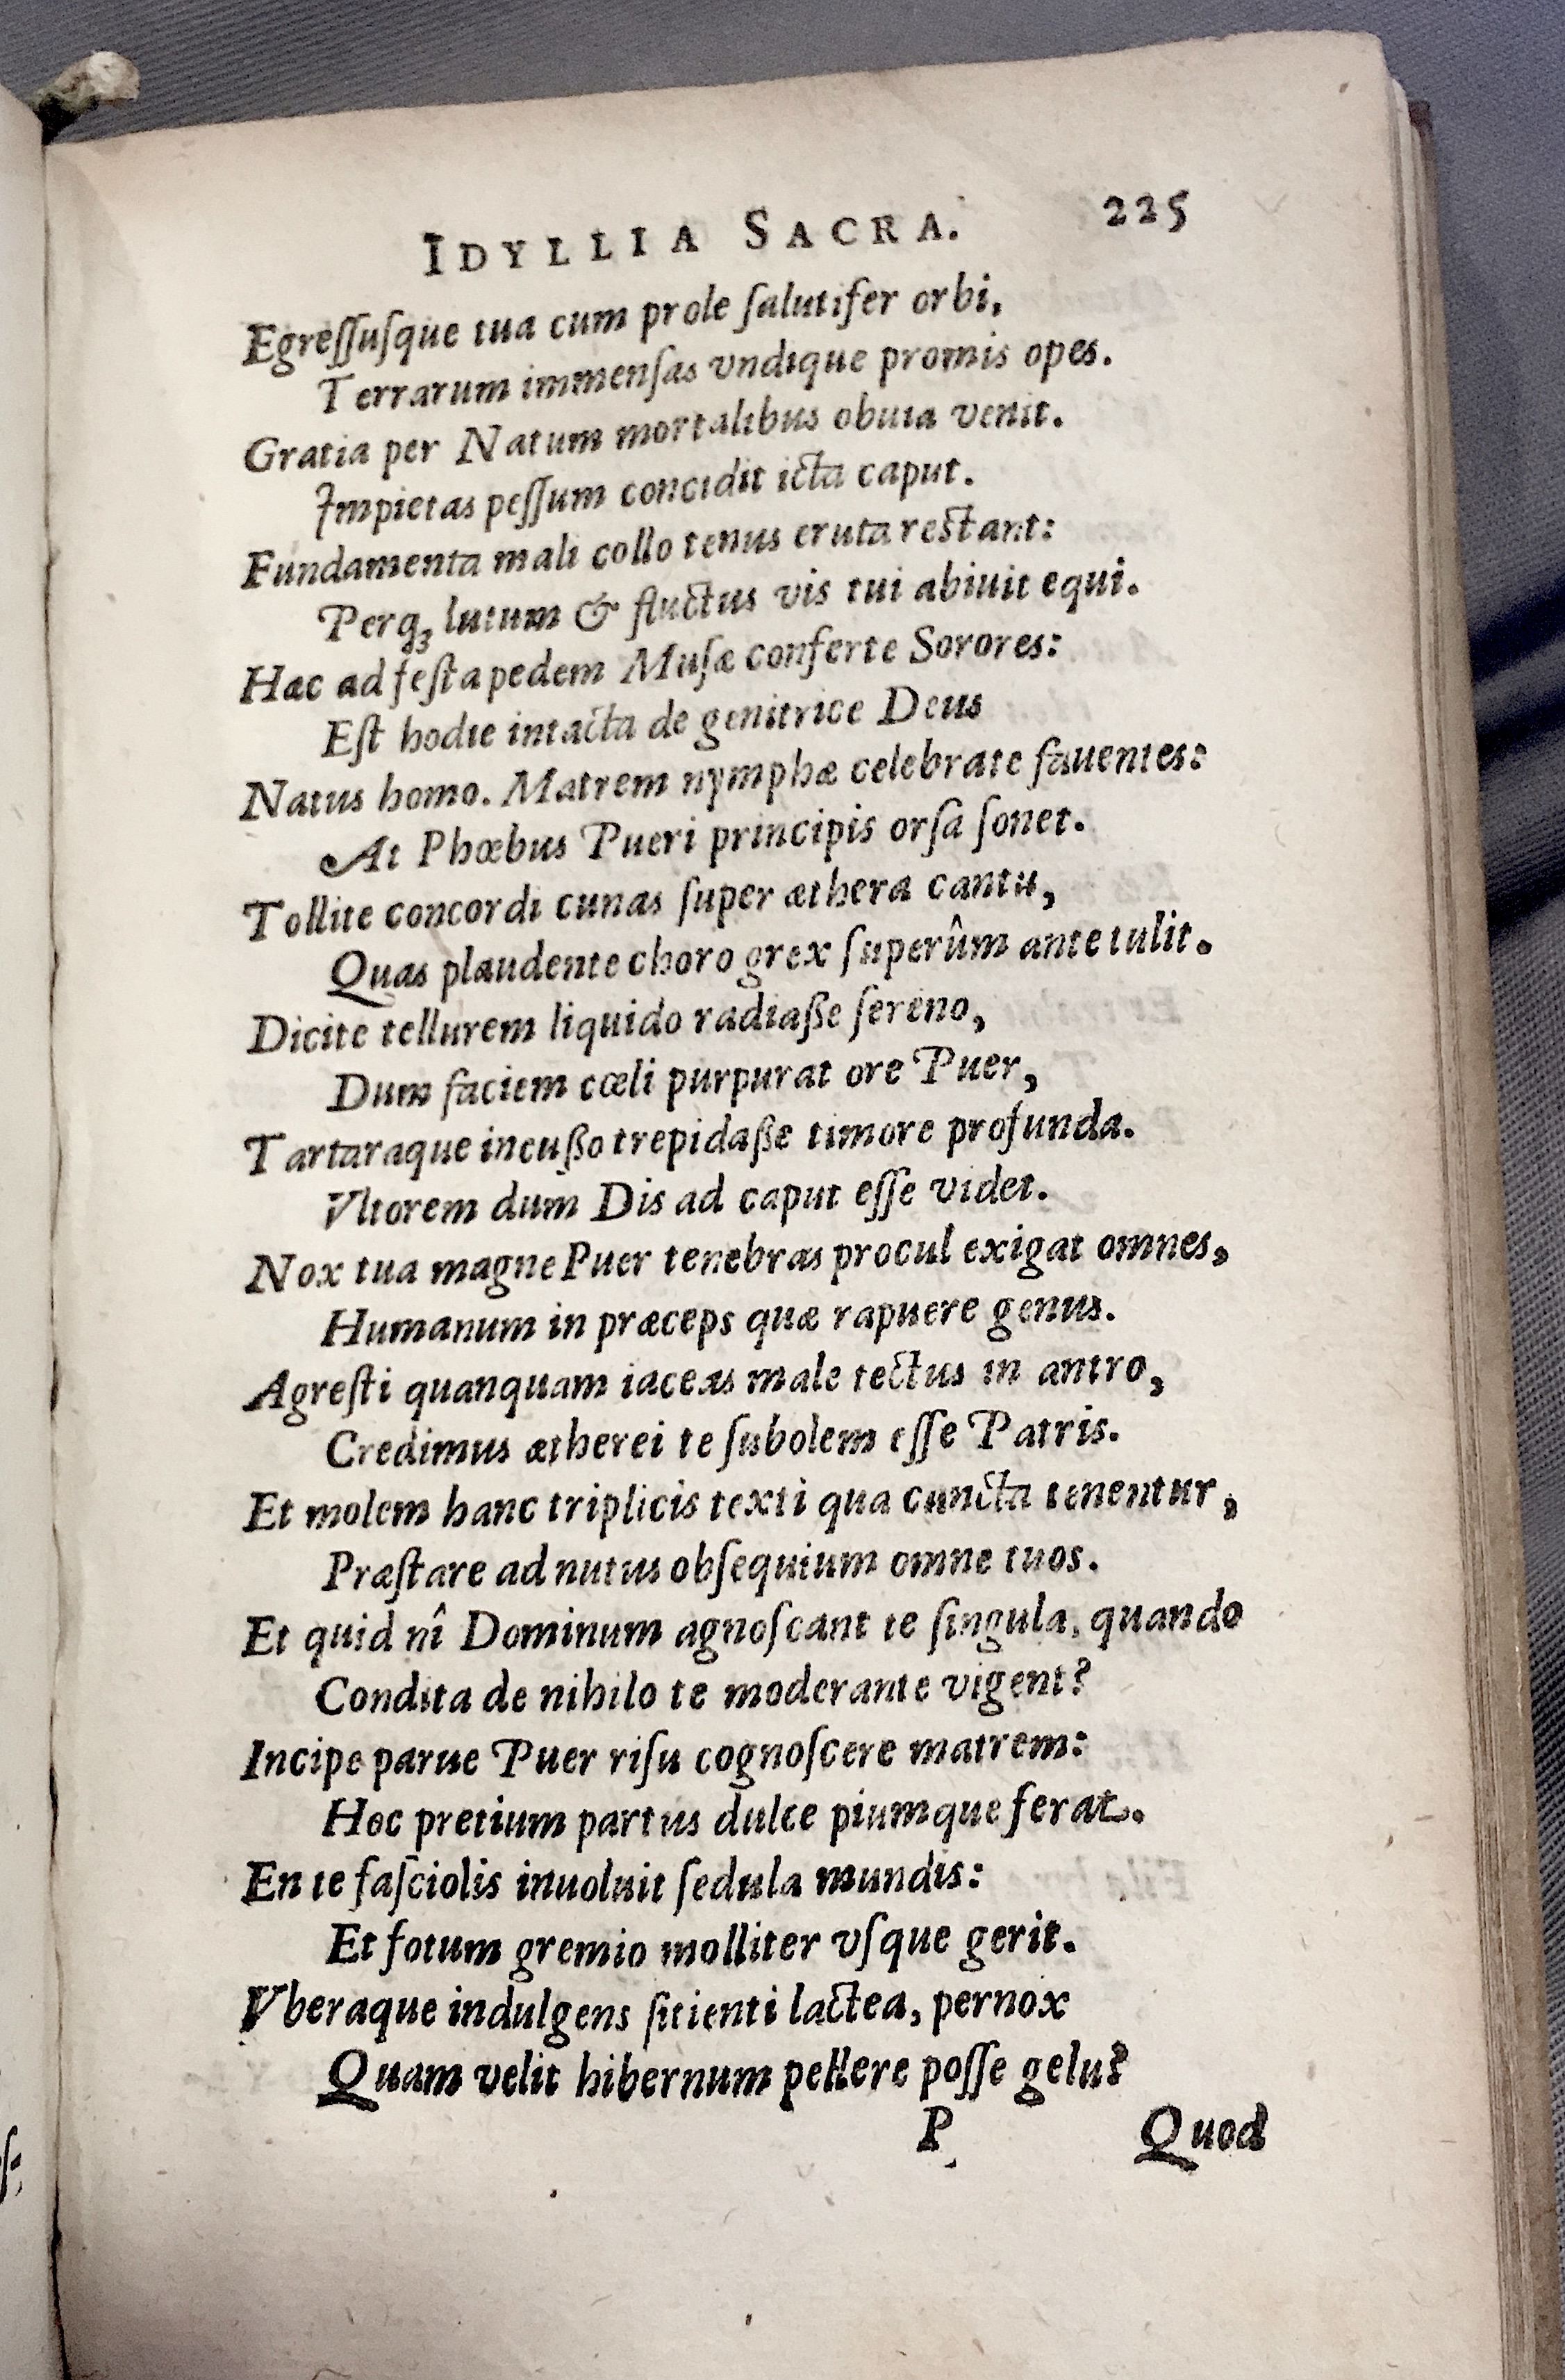 IDYLLIA SACRA. 225
Egreſſuſque tua cum prole ſalutifer orbi,
Terrarum immenſas vndique promis opes.
Gratia per Natum mortalibus obuia venit.
Impietas peſſum concidit icta caput.
Fundamenta mali collo tenus eruta restant:
Perq₃ lutum & fluctus vis tui abiuit equi.
Hac ad feſta pedem Muſæ conferte Sorores:
Eſt hodie intacta de genitrice Deus
Natus homo. Matrem nymphæ celebrate fauentes:
At Phœbus Pueri principis orſa ſonet.
Tollite concordi cunas ſuper æthera cantu,
Quas plaudente choro grex ſuperûm ante tulit.
Dicite tellurem liquido radiaße ſereno,
Dum faciem cœli purpurat ore Puer,
Tartaraque incußo trepidaße timore profunda.
Vltorem dum Dis ad caput eſſe videt.
Nox tua magne Puer tenebras procul exigat omnes,
Humanum in præceps quæ rapuere genus.
Agreſti quanquam iaceas male tectus in antro,
Credimus ætherei te ſubolem eſſe Patris.
Et molem hanc triplicis texti qua cuncta tenentur,
Præſtare ad nutus obſequium omne tuos.
Et quid nî Dominum agnoſcant te ſingula, quando
Condita de nihilo te moderante vigent?
Incipe parue Puer riſu cognoſcere matrem:
Hoc pretium partus dulce piumque ferat.
En te faſciolis inuoluit ſedula mundis:
Et fotum gremio molliter vſque gerit.
Vberaque indulgens ſitienti lactea, pernox
Quam velit hibernum pellere poſſe gelu?
P Quod